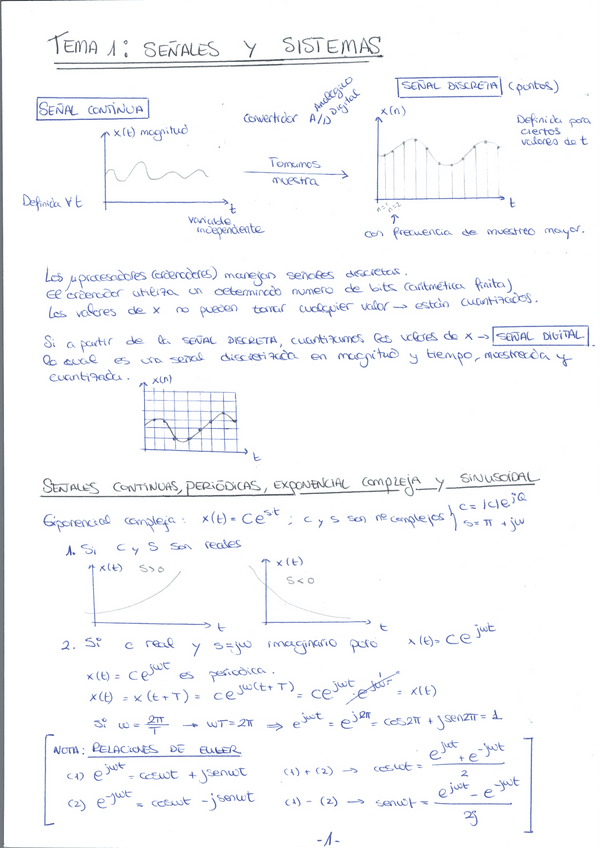 TEMA 1: SEÑALES Y SISTEMAS
SEÑAL CONTINUA
x(t) magnitud
Definida ∀t
t
variable
independiente
Convertidor A/D Analógico Digital
Tomamos
muestra
SEÑAL DISCRETA (puntos)
x(n)
Definida para
ciertos
valores de t
t
n=1 n=2
con frecuencia de muestreo mayor.
Los μprocesadores (ordenadores) manejan señales discretas.
El ordenador utiliza un determinado numero de bits (aritmética finita)
Los valores de x no pueden tomar cualquier valor → están cuantizados.
Si a partir de la SEÑAL DISCRETA, cuantizamos los valores de x → SEÑAL DIGITAL
lo cual es una señal discretizada en magnitud y tiempo, muestreada y
cuantizada.
x(n)
t
SEÑALES CONTINUAS, PERIÓDICAS, EXPONENCIAL COMPLEJA Y SINUSOIDAL
Exponencial compleja: x(t) = Ce^st ; C y S son nº complejos } C = |C|e^jθ
S = π + jω
1. Si C y S son reales
x(t) S>0
t
x(t)
S<0
t
2. Si C real y S=jω imaginario puro x(t) = Ce^jωt
x(t) = Ce^jωt es periodica.
x(t) = x(t+T) = Ce^jω(t+T) = Ce^jωt · e^jωT = x(t)
Si ω = 2π/T → ωT = 2π ⇒ e^jωt = e^j2π = cos2π + jsen2π = 1
NOTA: RELACIONES DE EULER
(1) e^jωt = cosωt + jsenωt (1)+(2) → cosωt = e^jωt + e^-jωt / 2
(2) e^-jωt = cosωt - jsenωt (1)-(2) → senωt = e^jωt - e^-jωt / 2j
-1-